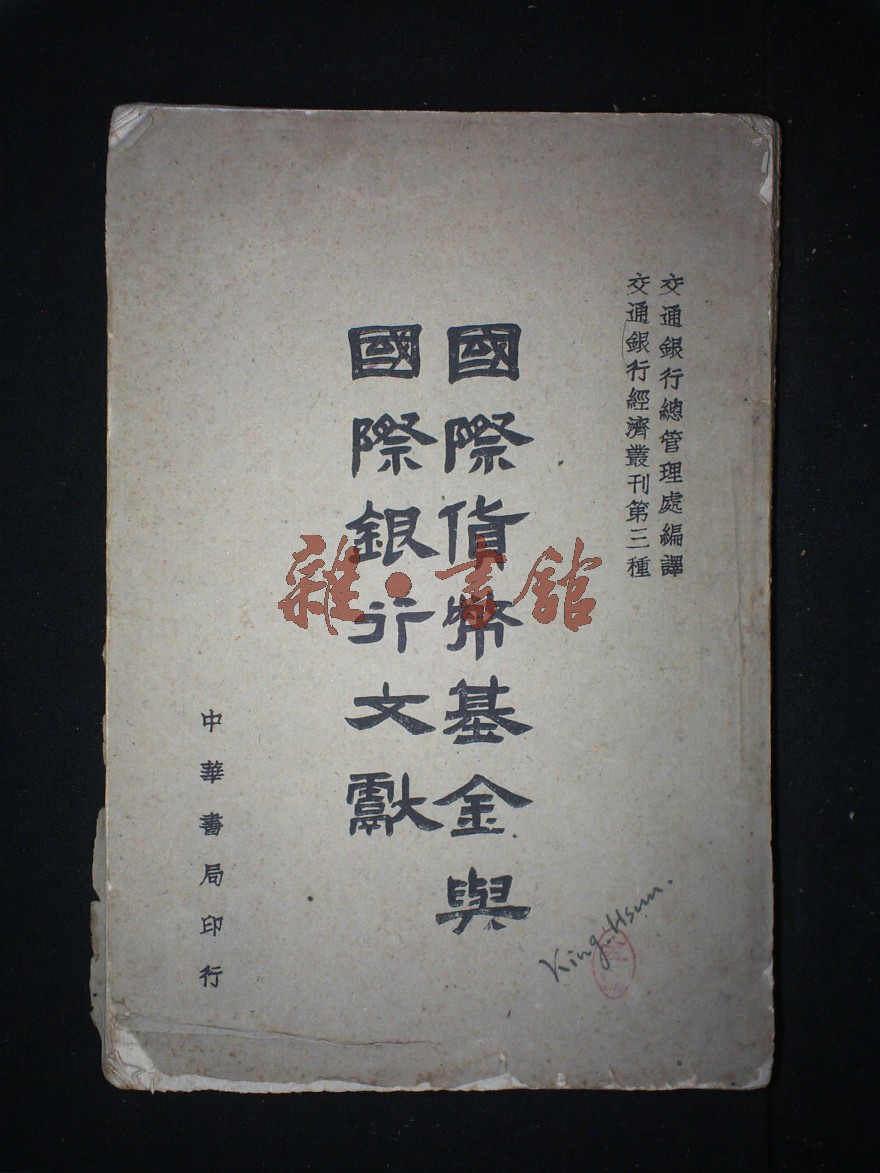 交通銀行總管理處編譯
交通銀行經濟叢刊第三種
國際貨幣基金與
國際銀行文獻
中華書局印行
King. Hsun.
雜·書館